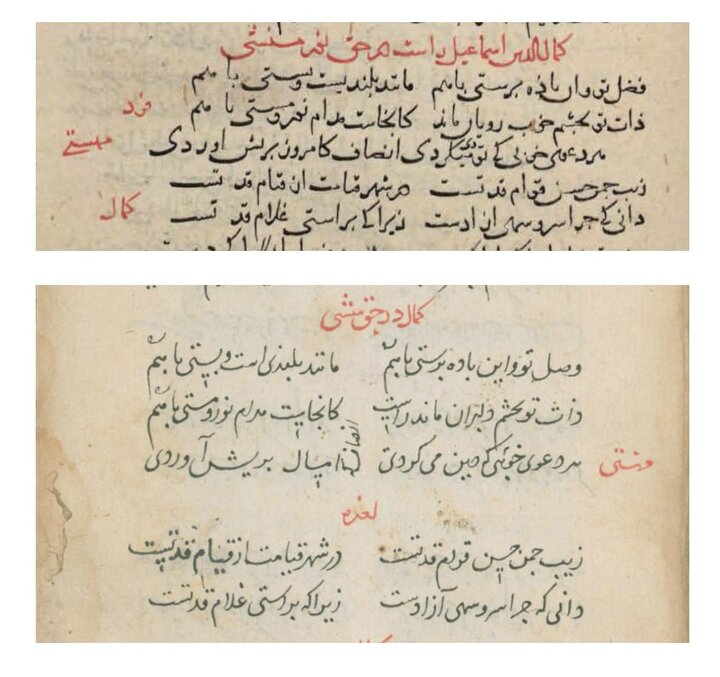 کمال‌الدین اسماعیل راست در حق منشی
فضل تو و این باده پرستی با هم مانند بلندیست و پستی با هم
ذات تو بچشم خوب رویان ماند کانجاست مدام نور و مستی با هم
فرد
هر دعوی خوبی که تو میکردی انصاف کامروز بریش اوردی
زیب چمن حسن قوام قد تست در شهر قیامت از قیام قد تست
دانی که چرا سرو سهی ازادست زیرا که براستی غلام قد تست
کمال
کمال در حق منشی
وصل تو و این باده پرستی با هم مانند بلندی است و پستی با هم
ذات تو بچشم دلبران ماند راست کانجایت مدام نور و مستی با هم
هر دعوی خوبئی که می کردی انصاف امسال بریش آوردی
زیب چمن حسن قوام قد تست در شهر قیامت از قیام قد تست
دانی که چرا سرو سهی آزادست زیرا که براستی غلام قد تست